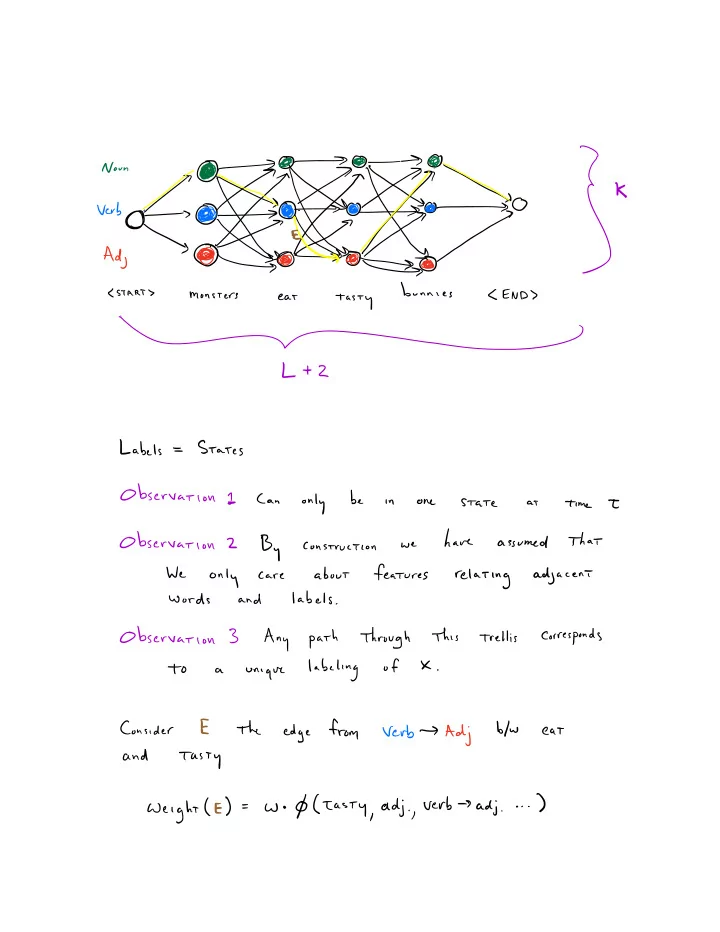 Noun
K
Verb
E
Adj
<START> monsters eat tasty bunnies <END>
L + 2
Labels = States
Observation 1 Can only be in one state at time τ
Observation 2 By construction we have assumed that
We only care about features relating adjacent
words and labels.
Observation 3 Any path through this trellis corresponds
to a unique labeling of x.
Consider E the edge from Verb → Adj b/w eat
and tasty
Weight(E) = w · φ(tasty, adj., verb → adj. ...)